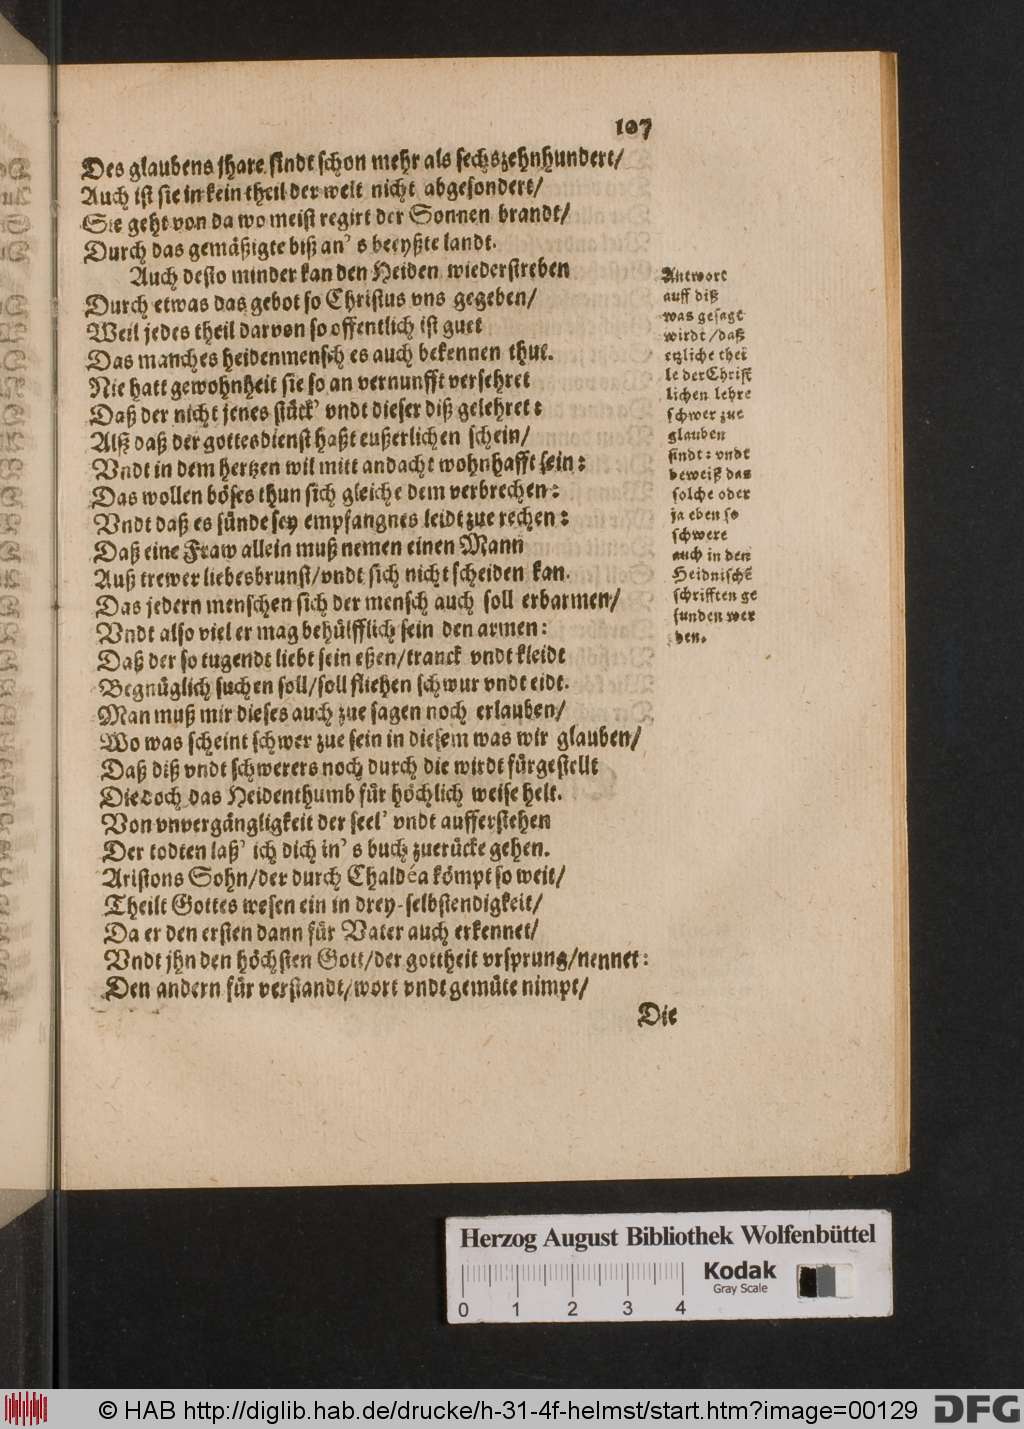 107
Des glaubens jhare sindt schon mehr als sechszehnhundert/
Auch ist sie in kein theil der welt nicht abgesondert/
Sie geht von da wo meist regirt der Sonnen brandt/
Durch das gemäßigte biß an' s beeyßte landt.
Auch desto minder kan den Heiden wiederstreben
Durch etwas das gebot so Christus vns gegeben/
Weil jedes theil darvon so offentlich ist guet
Das manches heidenmensch es auch bekennen thut.
Nie hatt gewohnheit sie so an vernunfft versehret
Daß der nicht jenes stück' vndt dieser diß gelehret:
Alß daß der gottesdienst haßt eußerlichen schein/
Vndt in dem hertzen wil mitt andacht wohnhafft sein:
Das wollen böses thun sich gleiche dem verbrechen:
Vndt daß es sünde sey empfangnes leidt zue rechen:
Daß eine Fraw allein muß nemen einen Mann
Auß trewer liebesbrunst/vndt sich nicht scheiden kan.
Das jedern menschen sich der mensch auch soll erbarmen/
Vndt also viel er mag behülfflich sein den armen:
Daß der so tugendt liebt sein eßen/tranck vndt kleidt
Begnüglich suchen soll/soll fliehen schwur vndt eidt.
Man muß mir dieses auch zue sagen noch erlauben/
Wo was scheint schwer zue sein in diesem was wir glauben/
Daß diß vndt schwerers noch durch die wirdt fürgestellt
Die doch das Heidenthumb für höchlich weise helt.
Von vnvergängligkeit der seel' vndt aufferstehen
Der todten laß' ich dich in' s buch zuerücke gehen.
Aristons Sohn/der durch Chaldéa kömpt so weit/
Theilt Gottes wesen ein in drey-selbstendigkeit/
Da er den ersten dann für Vater auch erkennet/
Vndt jhn den höchsten Gott/der gottheit vrsprung/nennet:
Den andern für verstandt/wort vndt gemüte nimpt/
Die
Antwort
auff diß
was gesagt
wirdt/daß
etzliche thei
le der Christ
lichen lehre
schwer zue
glauben
sindt: vndt
beweiß das
solche oder
ja eben so
schwere
auch in den
Heidnischē
schrifften ge
funden wer
den.
Herzog August Bibliothek Wolfenbüttel
Kodak
Gray Scale
0 1 2 3 4
© HAB http://diglib.hab.de/drucke/h-31-4f-helmst/start.htm?image=00129
DFG